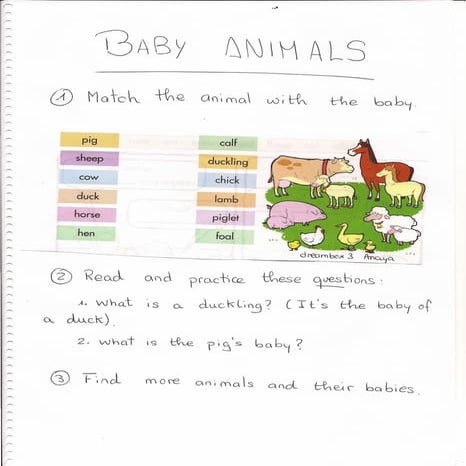 BABY ANIMALS
① Match the animal with the baby.
pig calf
sheep duckling
cow chick
duck lamb
horse piglet
hen foal
dreambox 3 Anaya
② Read and practice these questions:
1. What is a duckling? (It's the baby of
a duck).
2. What is the pig's baby?
③ Find more animals and their babies.